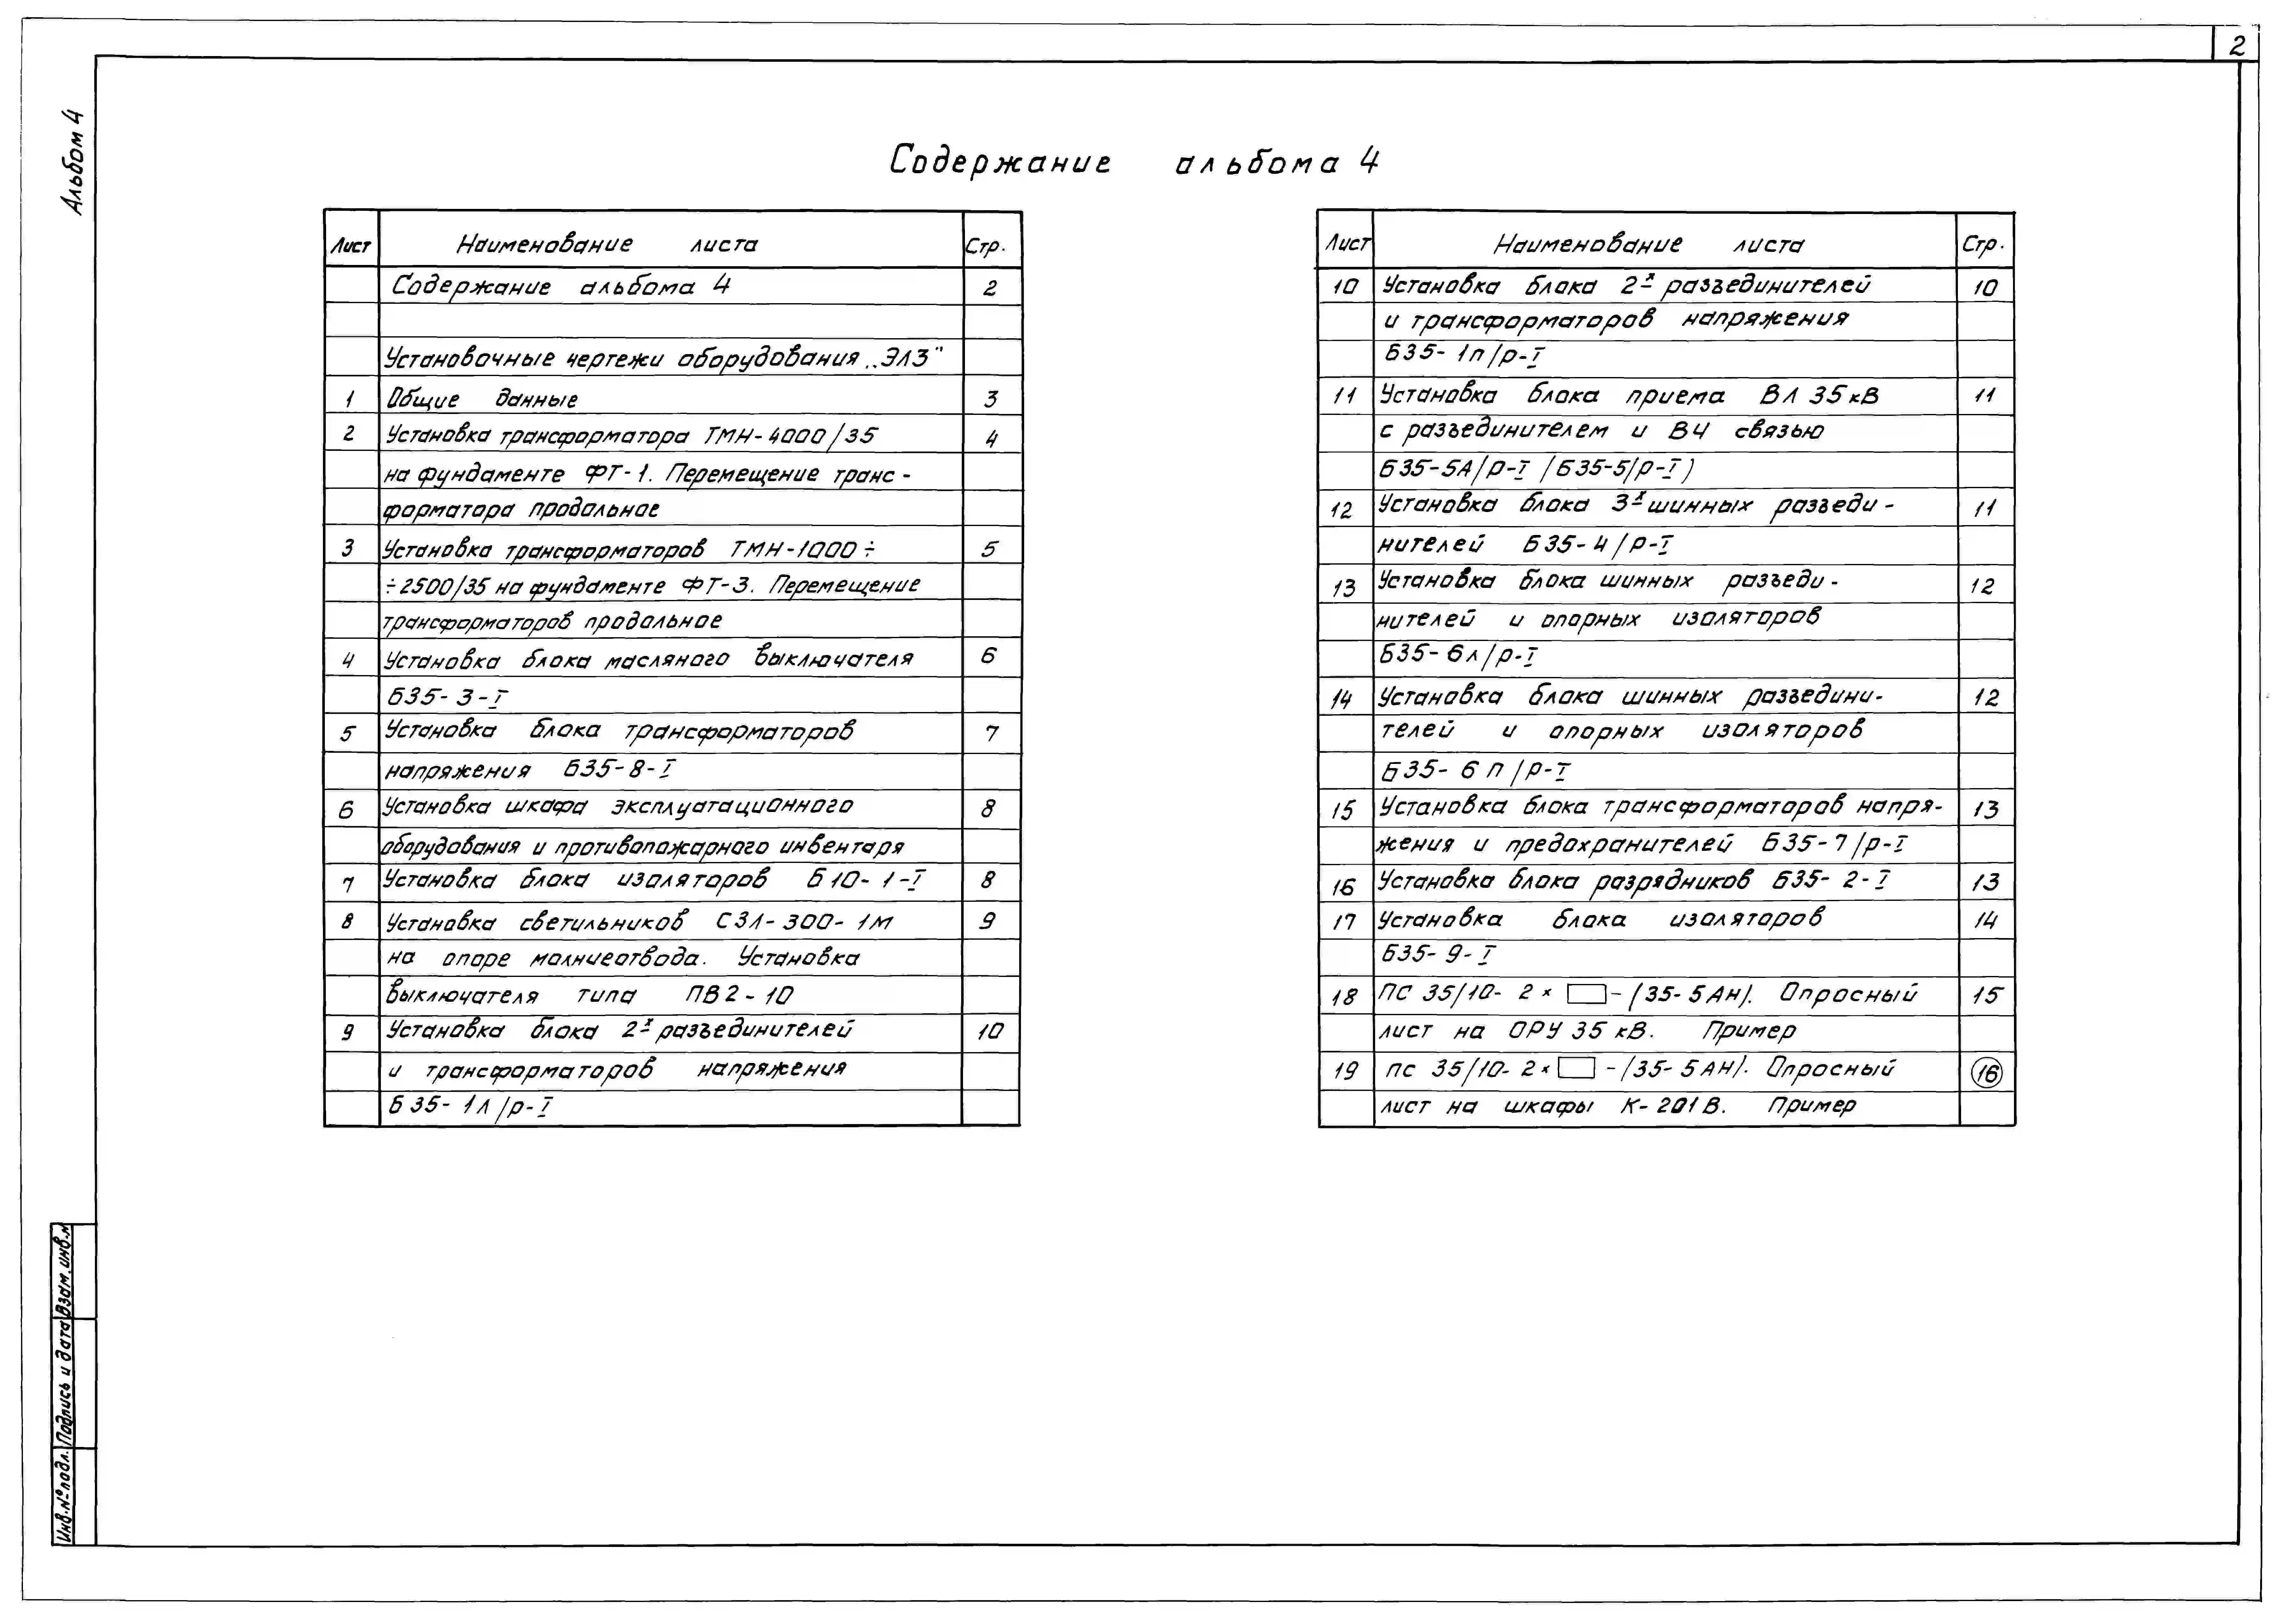 2
Альбом 4
Содержание альбома 4
Лист Наименование листа Стр.
Содержание альбома 4 2
Установочные чертежи оборудования „ЭЛ3"
1 Общие данные 3
2 Установка трансформатора ТМН-4000/35 4
на фундаменте ФТ-1. Перемещение транс-
форматора продольное
3 Установка трансформаторов ТМН-1000÷ 5
÷2500/35 на фундаменте ФТ-3. Перемещение
трансформаторов продольное
4 Установка блока масляного выключателя 6
Б35-3-I
5 Установка блока трансформаторов 7
напряжения Б35-8-I
6 Установка шкафа эксплуатационного 8
оборудования и противопожарного инвентаря
7 Установка блока изоляторов Б10-1-I 8
8 Установка светильников СЗЛ-300-1М 9
на опоре молниеотвода. Установка
выключателя типа ПВ2-10
9 Установка блока 2х разъединителей 10
и трансформаторов напряжения
Б35-1л/р-I
Лист Наименование листа Стр.
10 Установка блока 2х разъединителей 10
и трансформаторов напряжения
Б35-1п/р-I
11 Установка блока приема ВЛ 35кВ 11
с разъединителем и ВЧ связью
Б35-5А/р-I (Б35-5/р-I)
12 Установка блока 3х шинных разъеди- 11
нителей Б35-4/р-I
13 Установка блока шинных разъеди- 12
нителей и опорных изоляторов
Б35-6л/р-I
14 Установка блока шинных разъедини- 12
телей и опорных изоляторов
Б35-6п/р-I
15 Установка блока трансформаторов напря- 13
жения и предохранителей Б35-7/р-I
16 Установка блока разрядников Б35-2-I 13
17 Установка блока изоляторов 14
Б35-9-I
18 ПС 35/10-2×□-(35-5АН). Опросный 15
лист на ОРУ 35 кВ. Пример
19 ПС 35/10-2×□-(35-5АН). Опросный 16
лист на шкафы К-201В. Пример
Взам.инв.№
Подпись и дата
Инв.№ подл.